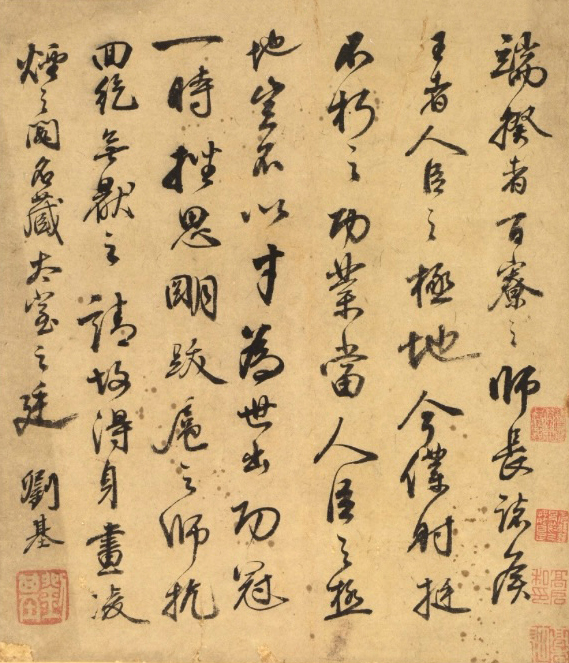 端揆者百寮之師長諸侯
王者人臣之極地今僕射挺
不朽之功業當人臣之極
地豈不以才為世出功冠
一時挫思明跋扈之師抗
迴紇無厭之請故得身畫凌
煙之閣名藏太室之廷 劉基